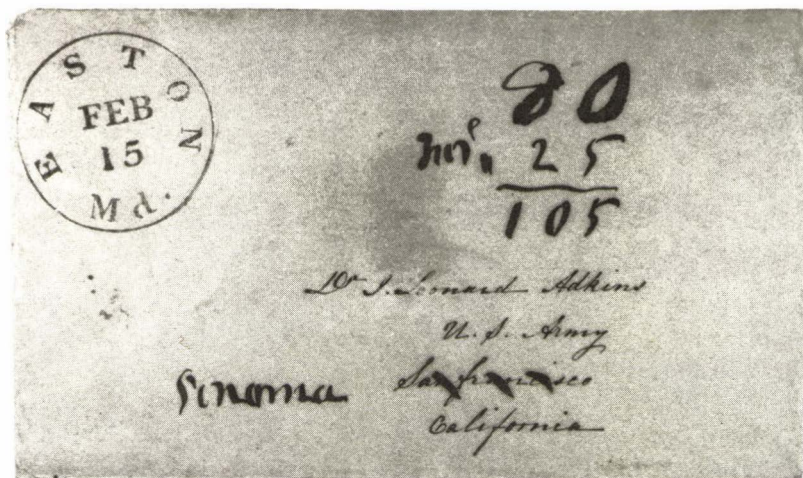 EASTON Md.
FEB
15
80
25
105
Dr J. Leonard Adkins
U. S. Army
Sonoma San francisco
California